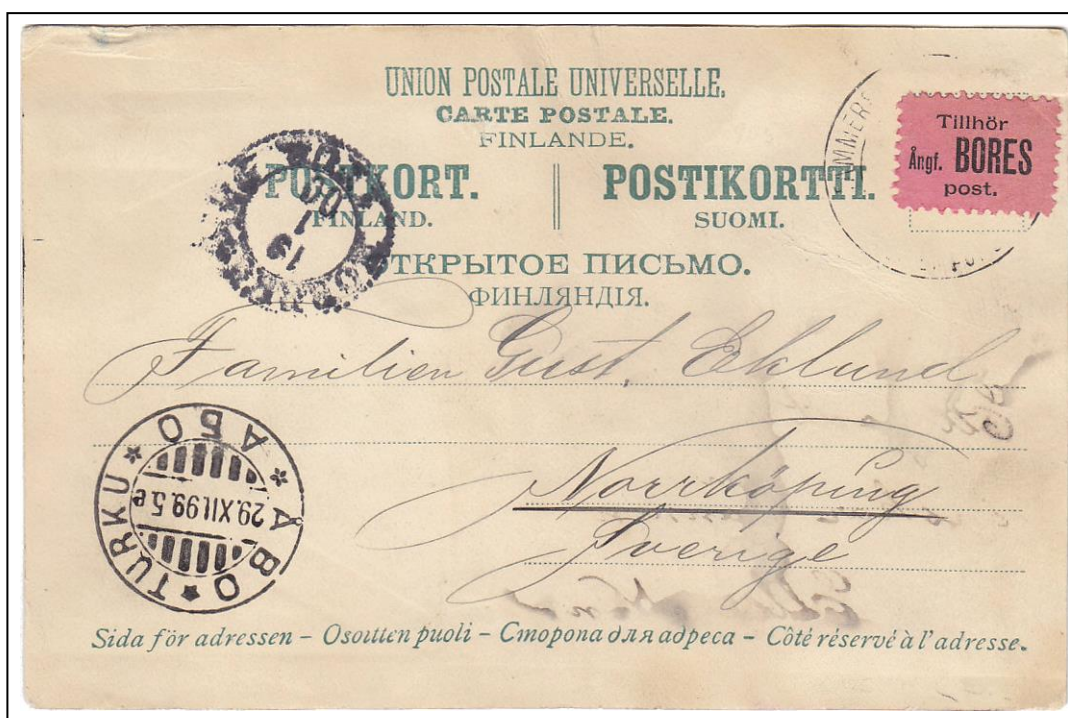 UNION POSTALE UNIVERSELLE.
CARTE POSTALE.
FINLANDE.
POSTKORT. POSTIKORTTI.
FINLAND. SUOMI.
ОТКРЫТОЕ ПИСЬМО.
ФИНЛЯНДІЯ.
Tillhör
Ångf. BORES
post.
Familien Gust. Eklund
Norrköping
Sverige
TURKU * АБО * ÅBO *
29.XII.99.5.e
Sida för adressen – Osoitten puoli – Сторона для адреса – Côté réservé à l'adresse.